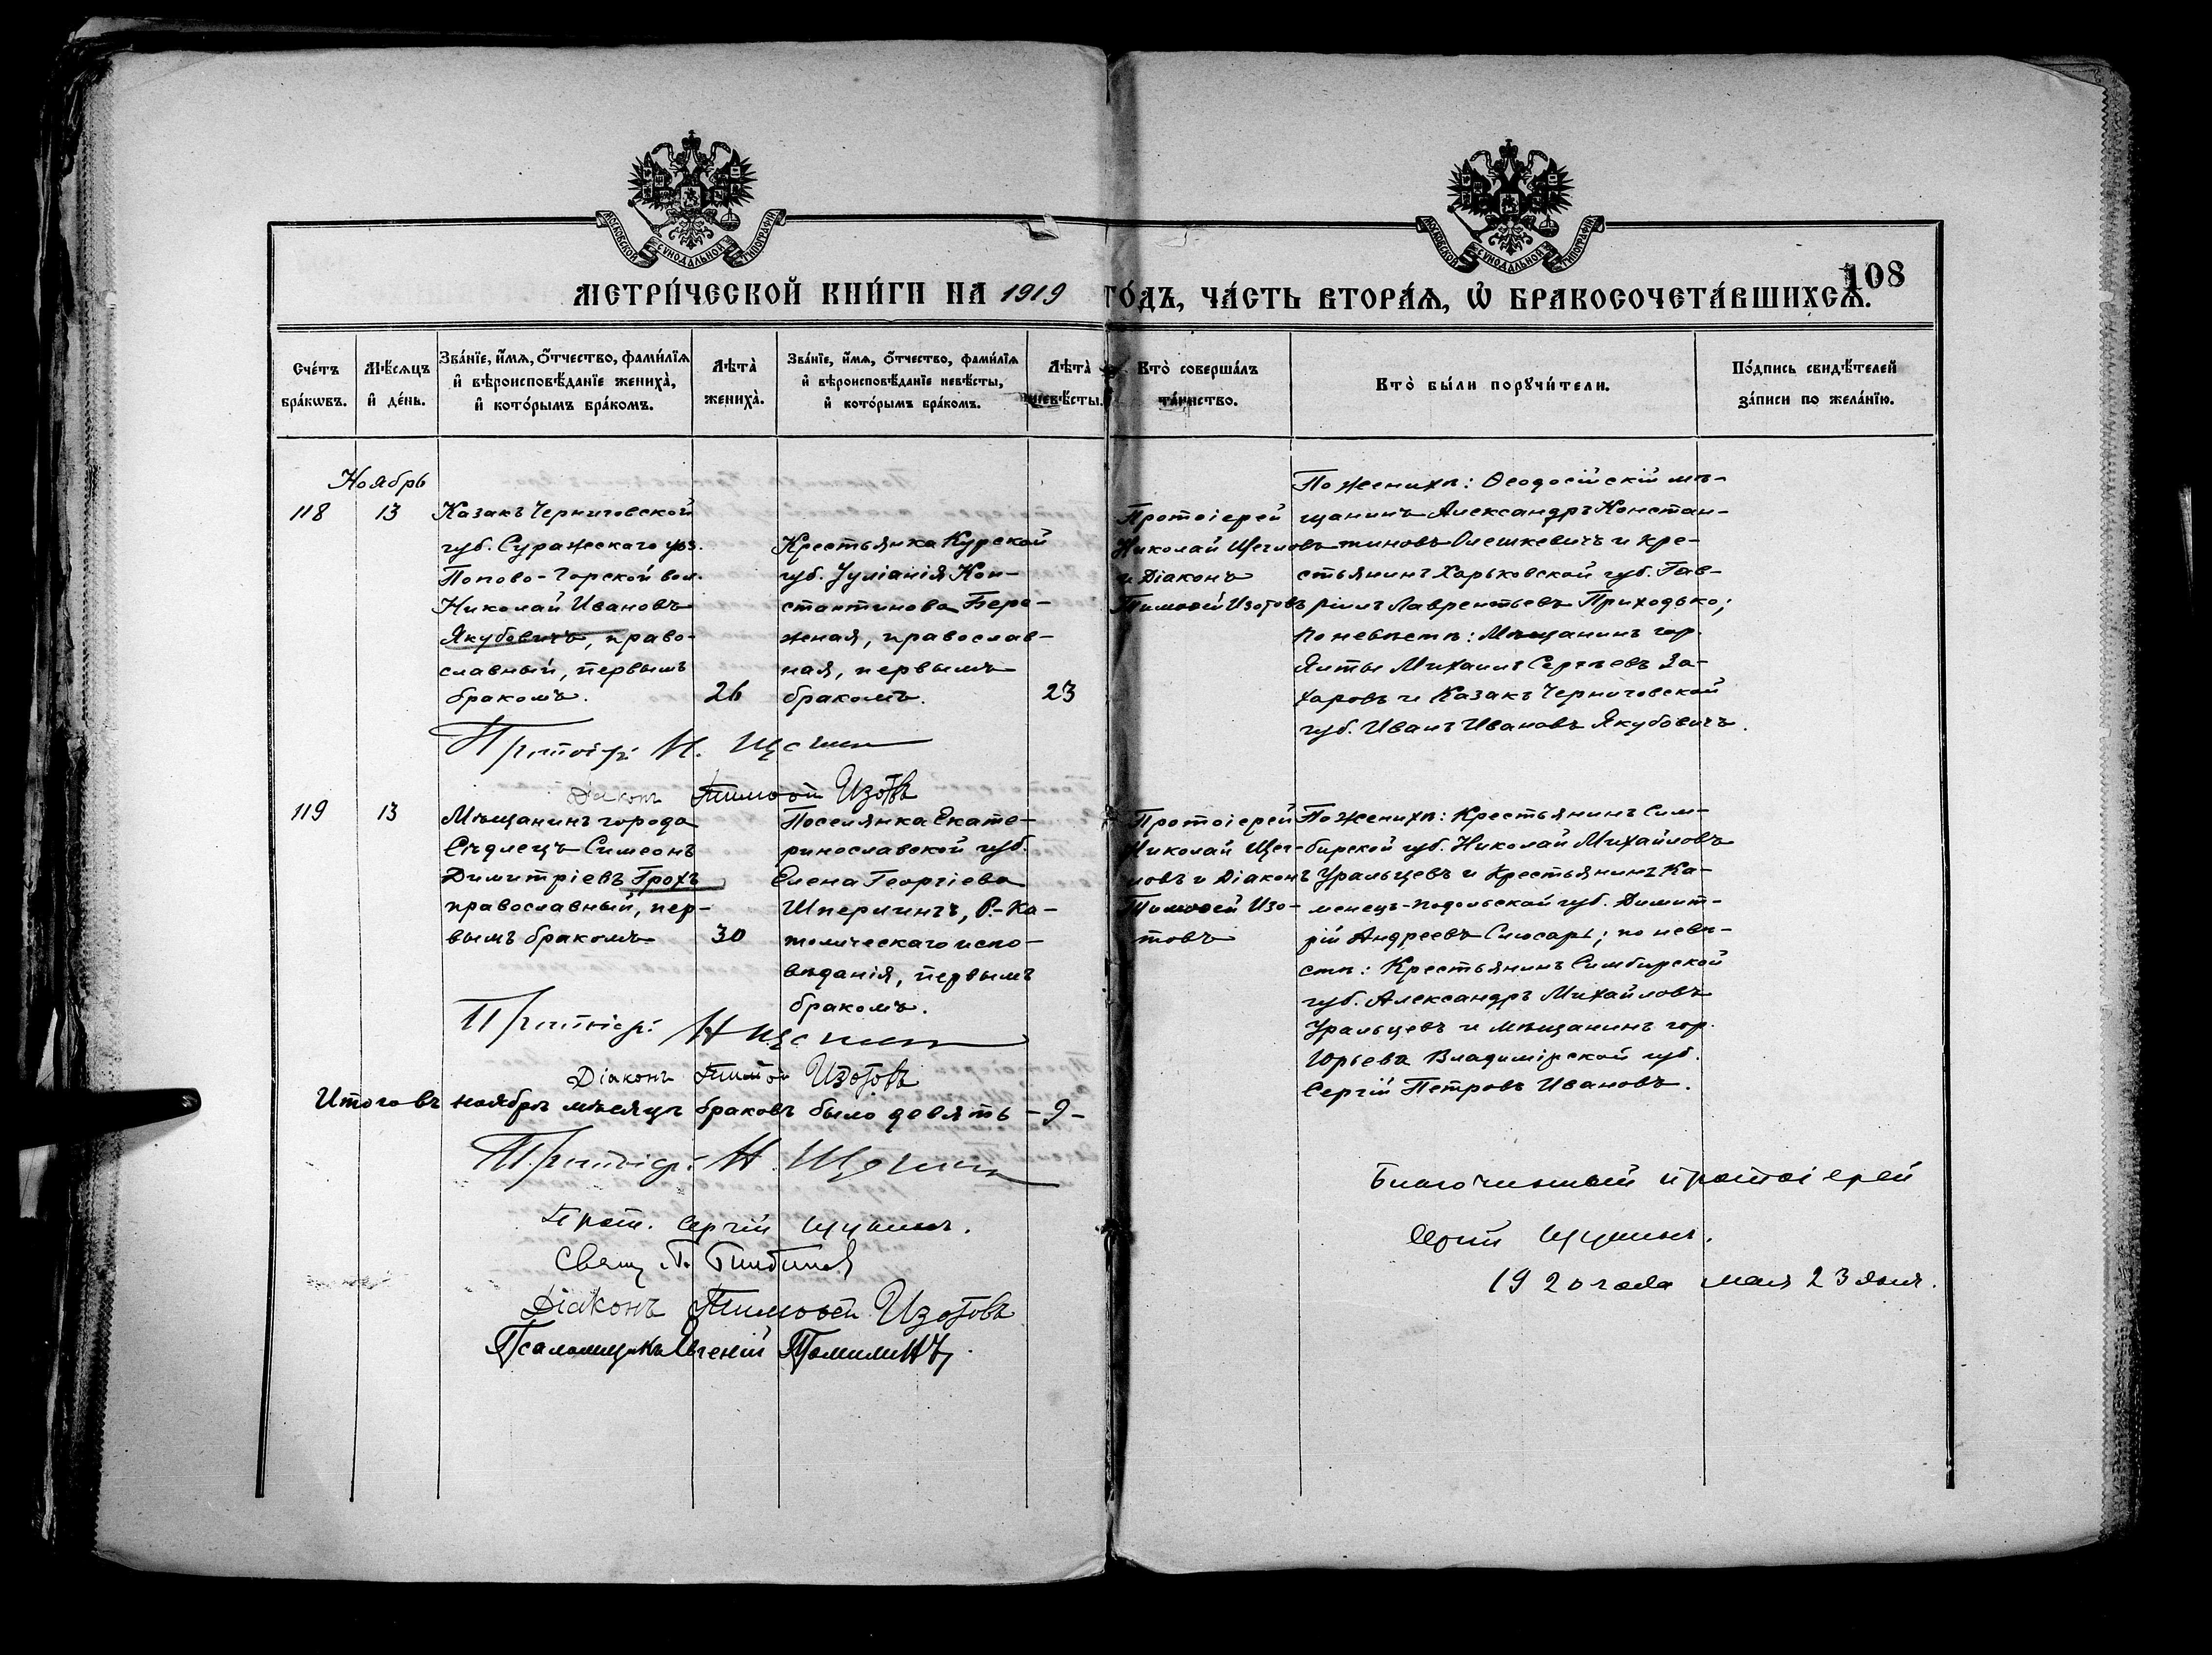 МОСКОВСКОЙ СѴНОДАЛЬНОЙ ТИПОГРАФІИ
МОСКОВСКОЙ СѴНОДАЛЬНОЙ ТИПОГРАФІИ
108
МЕТРИ́ЧЕСКОЙ КНИ́ГИ НА 1919 ГО́ДЪ, ЧА́СТЬ ВТОРА́Ѧ, Ѽ БРАКОСОЧЕТА́ВШИХСѦ.
Сче́тъ бра́кѡвъ.
Мѣ́сѧцъ и҆ де́нь.
Зва́нїе, и҆́мѧ, ѻ҆́тчество, фами́лїѧ
и҆ вѣроисповѣ́данїе жениха̀,
и҆ кото́рымъ бра́комъ.
Лѣта̀ жениха̀.
Зва́нїе, и҆́мѧ, ѻ҆́тчество, фами́лїѧ
и҆ вѣроисповѣ́данїе невѣ́сты,
и҆ кото́рымъ бра́комъ.
Лѣта̀ невѣ́сты.
Кто̀ соверша́лъ
та́инство.
Кто̀ бы́ли порꙋчи́тели.
По́дпись свидѣ́телей
за́писи по жела́нїю.
Ноябрь
118
13
Казакъ Черниговской
губ. Суражскаго уѣз.
Попово-Горской вол.
Николай Ивановъ
Якубовичъ, право-
славный, первымъ
бракомъ.
26
Крестьянка Курской
губ. Іуліанія Кон-
стантинова Бере-
жная, православ-
ная, первымъ
бракомъ.
23
Протоіерей
Николай Щегловъ
и Діаконъ
Тимоѳей Изотовъ
По женихѣ: Ѳеодосійскій мѣ-
щанинъ Александръ Констан-
тиновъ Олешкевичъ и кре-
стьянинъ Харьковской губ. Гав-
ріилъ Лаврентьевъ Приходько;
по невѣстѣ: Мѣщанинъ гор.
Ялты Михаилъ Сергѣевъ За-
харовъ и Казакъ Черниговской
губ. Иванъ Ивановъ Якубовичъ.
Протоіер. Н. Щегловъ
Діаконъ Тимоѳей Изотовъ
119
13
Мѣщанинъ города
Сѣдлецъ Симеонъ
Димитріевъ Грохъ
православный, пер-
вымъ бракомъ
30
Поселянка Екате-
ринославской губ.
Елена Георгіева
Шперлингъ, Р.-Ка-
толическаго испо-
вѣданія, первымъ
бракомъ.
Протоіерей
Николай Щег-
ловъ и Діаконъ
Тимоѳей Изо-
товъ
По женихѣ: Крестьянинъ Сим-
бирской губ. Николай Михайловъ
Уральцевъ и крестьянинъ Ка-
менецъ-Подольской губ. Димит-
рій Андреевъ Слюсарь; по невѣ-
стѣ: Крестьянинъ Симбирской
губ. Александръ Михайловъ
Уральцевъ и мѣщанинъ гор.
Юрьева Владимірской губ.
Сергій Петровъ Ивановъ.
Протоіер. Н Щегловъ
Діаконъ Тимоѳей Изотовъ
Итого въ ноябрѣ мѣсяцѣ браковъ было девять - 9 -
Протоіер. Н. Щегловъ
Прот. Сергій Щукинъ.
Свящ.
Діаконъ Тимоѳей Изотовъ
Псаломщикъ Евгеній Томилинъ.
Благочинный протоіерей
Сергій Щукинъ.
1920 года мая 23 дня.